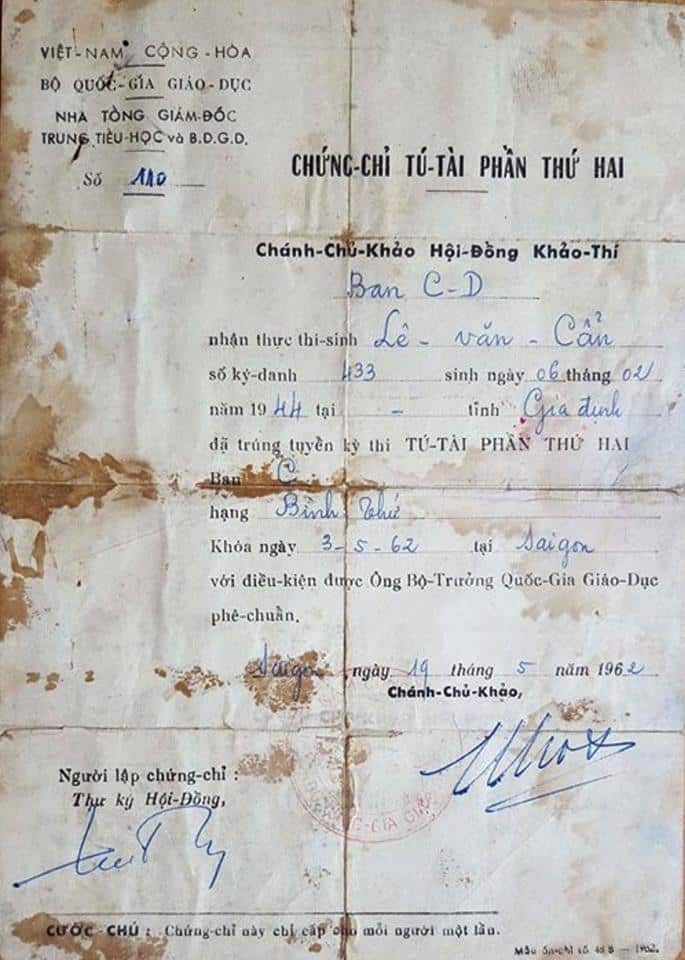 VIỆT-NAM CỘNG-HÒA
BỘ QUỐC-GIA GIÁO-DỤC
NHA TỔNG GIÁM-ĐỐC
TRUNG TIỂU-HỌC và B.D.G.D.
Số 110
CHỨNG-CHỈ TÚ-TÀI PHẦN THỨ HAI
Chánh-Chủ-Khảo Hội-Đồng Khảo-Thí
Ban C-D
nhận thực thí-sinh Lê - văn - Cẩn
số ký-danh 433 sinh ngày 06 tháng 02
năm 1944 tại - tỉnh Gia định
đã trúng tuyển kỳ thi TÚ-TÀI PHẦN THỨ HAI
Ban C
hạng Bình thứ
Khóa ngày 3-5-62 tại Saigon
với điều-kiện được Ông Bộ-Trưởng Quốc-Gia Giáo-Dục
phê-chuẩn.
Saigon, ngày 19 tháng 5 năm 1962
Chánh-Chủ-Khảo,
Người lập chứng-chỉ :
Thư ký Hội-Đồng,
CƯỚC CHÚ : Chứng-chỉ này chỉ cấp cho mỗi người một lần.
1962.